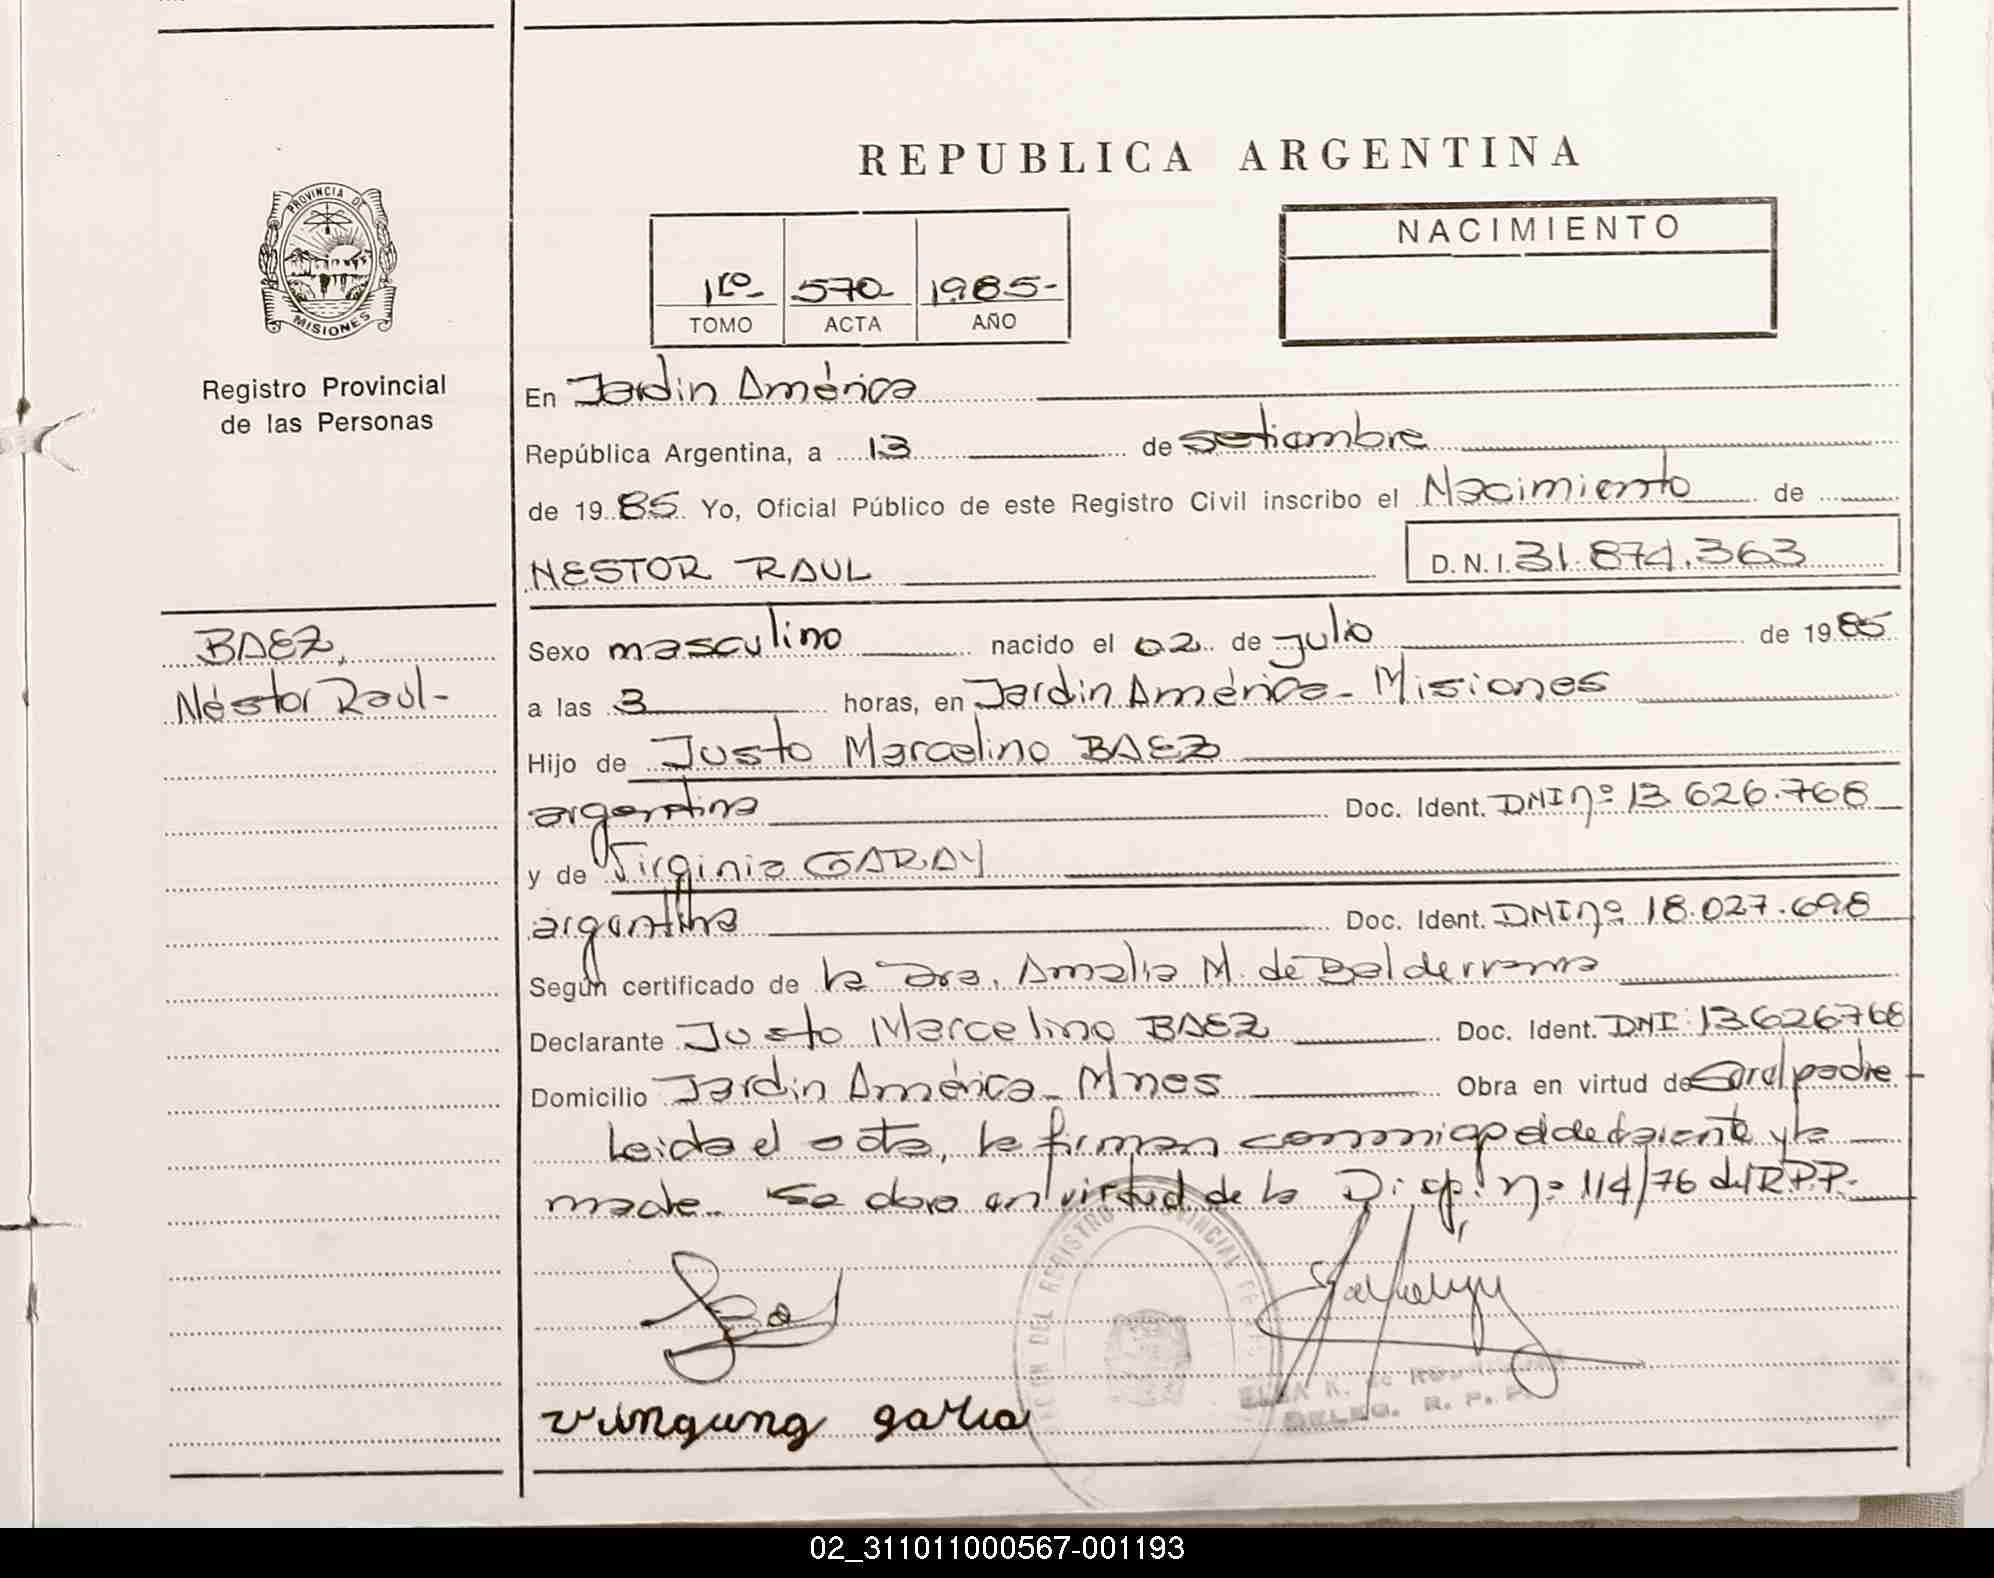 REPUBLICA ARGENTINA
PROVINCIA DE
MISIONES
Registro Provincial
de las Personas
1ro- 570- 1985-
TOMO ACTA AÑO
NACIMIENTO
En Jardín América
República Argentina, a 13 de setiembre
de 1985 Yo, Oficial Público de este Registro Civil inscribo el Nacimiento de
NESTOR RAUL D.N.I. 31.874.363
BAEZ,
Néstor Raúl-
Sexo masculino nacido el 02 de julio de 1985
a las 3 horas, en Jardín América- Misiones
Hijo de Justo Marcelino BAEZ
argentina Doc. Ident. DNI nº 13.626.768
y de Virginia GARAY
argentina Doc. Ident. DNI nº 18.027.698
Según certificado de la Dra. Amalia M. de Balderrama
Declarante Justo Marcelino BAEZ Doc. Ident. DNI 13626768
Domicilio Jardín América- Mnes Obra en virtud de padre
Leida el acta, la firman conmigo el declarante y la
madre. Se obra en virtud de la Disp. nº 114/76 del R.P.P.-
DEL REGISTRO PROVINCIAL DE
R. P. P.
02_311011000567-001193